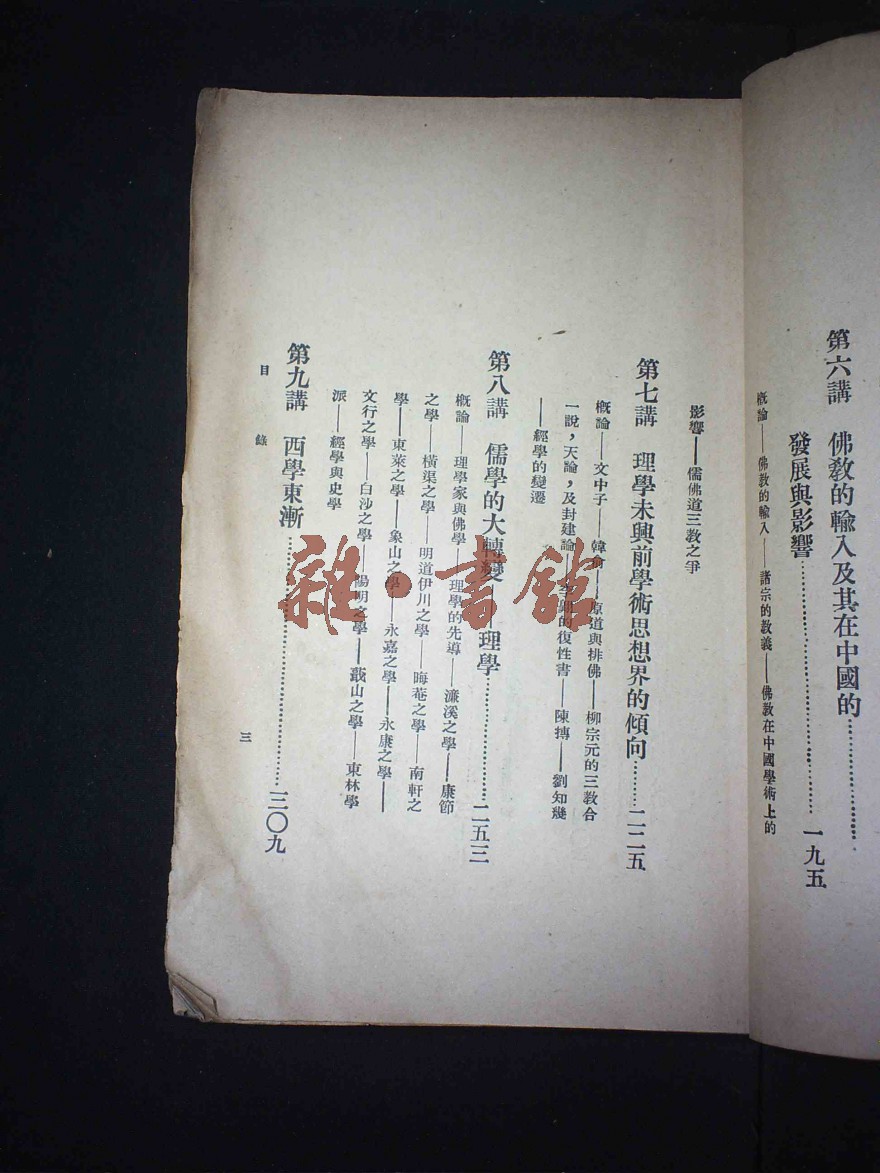 第六講　佛教的輸入及其在中國的
發展與影響……一九五
概論——佛教的輸入——諸宗的教義——佛教在中國學術上的
影響——儒佛道三教之爭
第七講　理學未興前學術思想界的傾向……二二五
概論——文中子——韓愈——原道與排佛——柳宗元的三教合
一說，天論，及封建論——李翺的復性書——陳摶——劉知幾
——經學的變遷
第八講　儒學的大轉變——理學……二五三
概論——理學家與佛學——理學的先導——濂溪之學——康節
之學——橫渠之學——明道伊川之學——晦菴之學——南軒之
學——東萊之學——象山之學——永嘉之學——永康之學——
文行之學——白沙之學——陽明之學——蕺山之學——東林學
派——經學與史學
第九講　西學東漸……三〇九
目錄
三
雜·書館